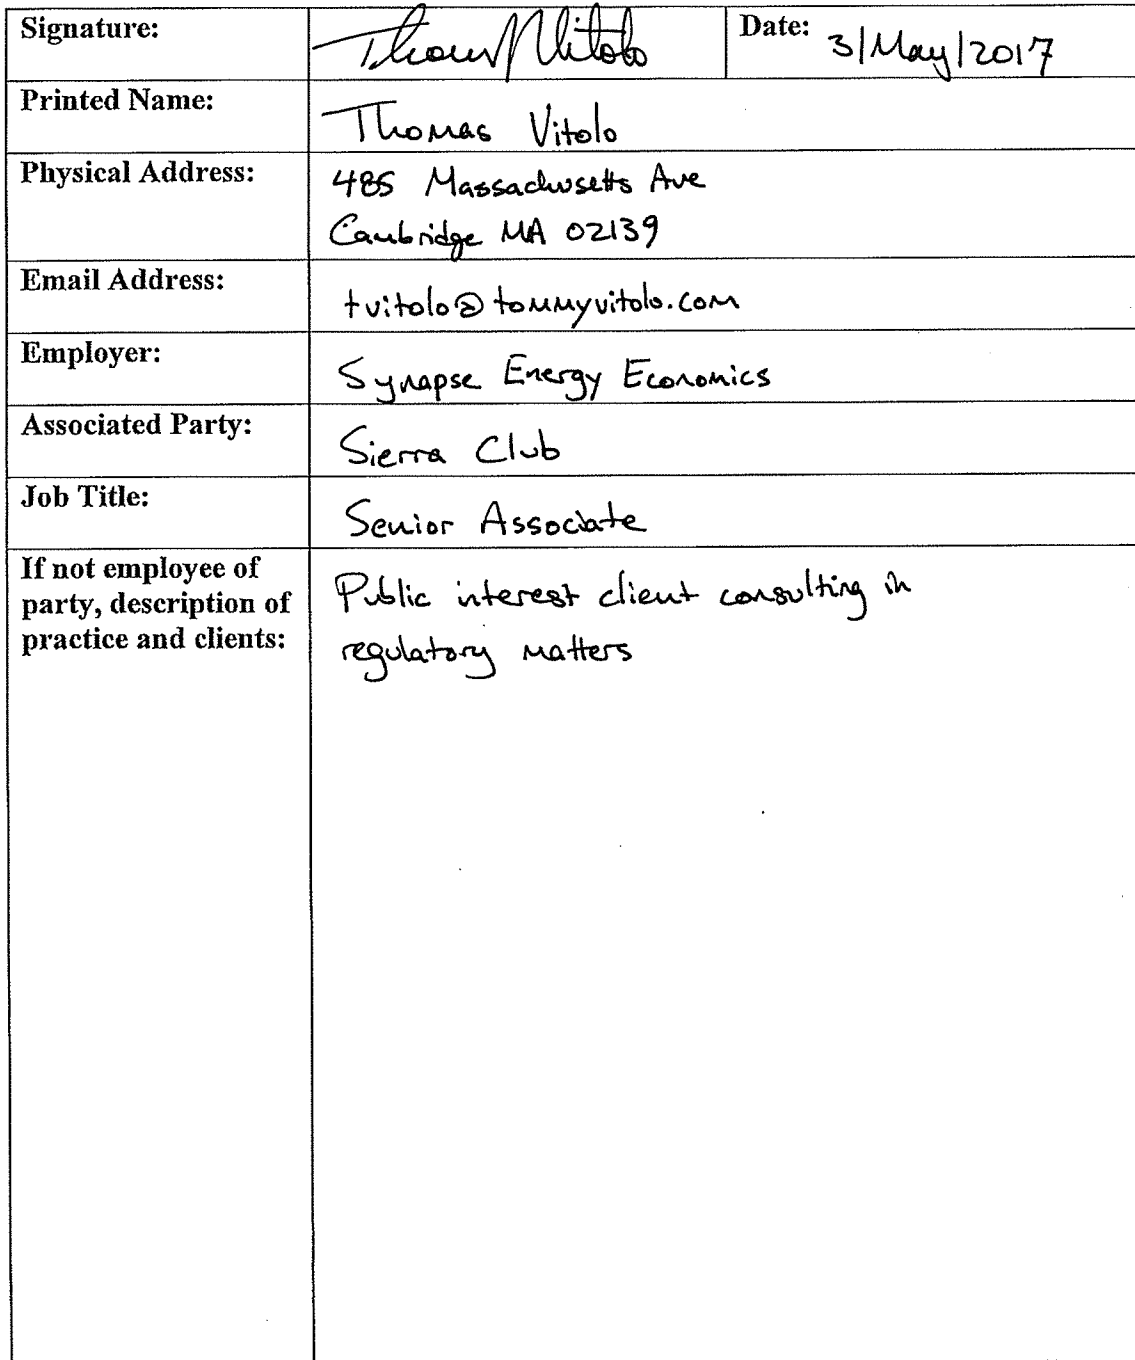 Signature: Thomas Vitolo Date: 3/May/2017
Printed Name: Thomas Vitolo
Physical Address: 485 Massachusetts Ave
Cambridge MA 02139
Email Address: tvitolo@tommyvitolo.com
Employer: Synapse Energy Economics
Associated Party: Sierra Club
Job Title: Senior Associate
If not employee of
party, description of
practice and clients:
Public interest client consulting in
regulatory matters